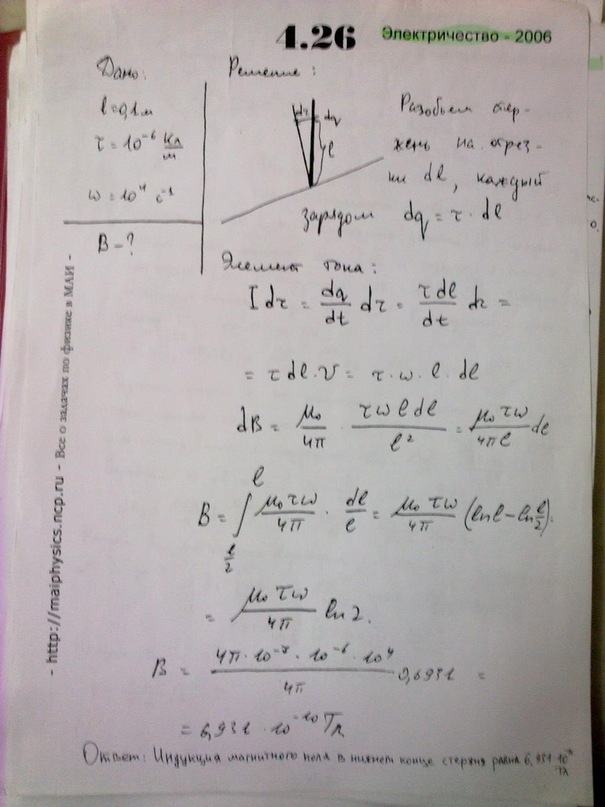 4.26 Электричество - 2006
Дано:
l = 0,1 м
τ = 10⁻⁶ Кл/м
ω = 10⁴ с⁻¹
B - ?
Решение:
dr dq
l
Разобьем стер-
жень на отрез-
ки dl, каждый
зарядом dq = τ · dl
Элемент тока:
I dr = dq/dt dr = τ dl/dt dr =
= τ dl · v = τ · ω · l · dl
dB = μ₀/4π · τ ω l dl/l² = μ₀ τ ω/4π l dl
B = ∫ₗ/₂ˡ μ₀ τ ω/4π · dl/l = μ₀ τ ω/4π (ln l - ln l/2) =
= μ₀ τ ω/4π ln 2.
B = 4π · 10⁻⁷ · 10⁻⁶ · 10⁴/4π 0,6931 =
= 6,931 · 10⁻¹⁰ Тл
Ответ: Индукция магнитного поля в нижнем конце стержня равна 6,931 · 10
Тл
- http://maiphysics.ncp.ru - Все о задачах по физике в МАИ -